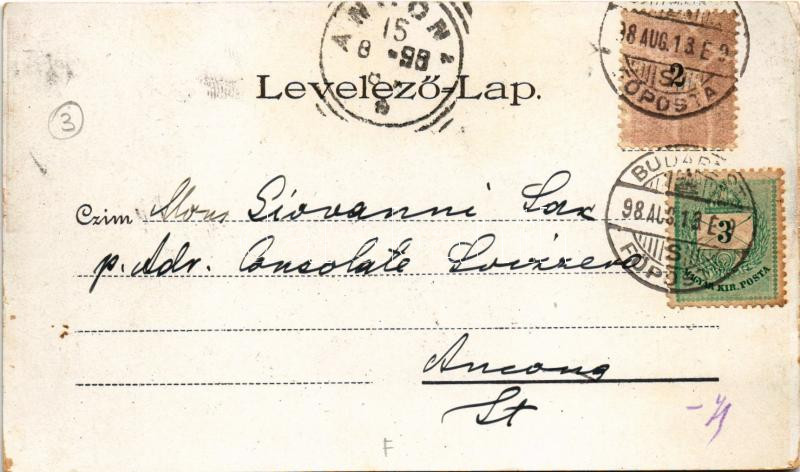 ANCONA
15
8 -98
98 AUG. 13. E 9
2
FŐPOSTA
Levelező-Lap.
3
BUDAPEST
98 AUG. 13 E 9
FŐPOSTA
3
MAGYAR KIR. POSTA
Czim Mons Giovanni Sax
p. Adr. Consolate Svizzera
Ancona
It
F